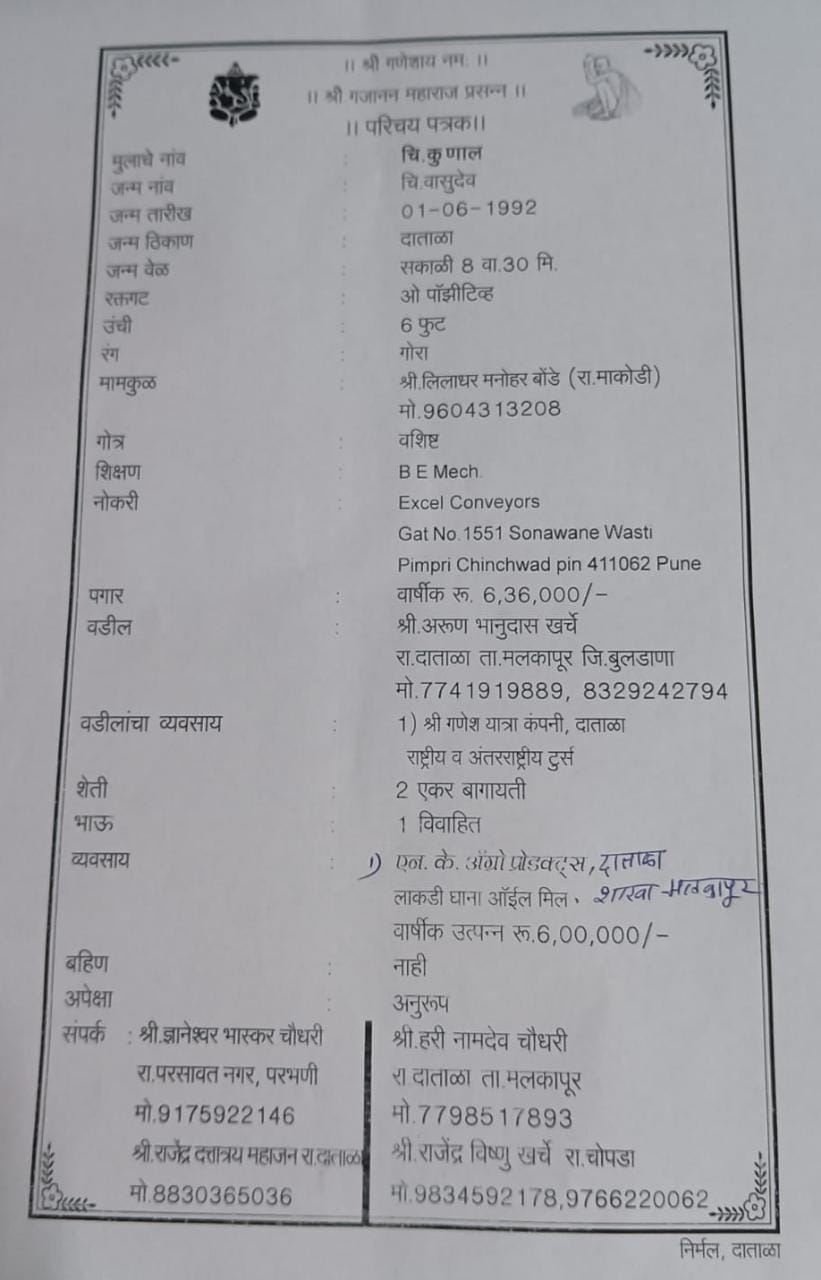 ।। श्री गणेशाय नमः ।।
।। श्री गजानन महाराज प्रसन्न ।।
।। परिचय पत्रक।।
मुलाचे नांव : चि.कुणाल
जन्म नांव : चि.वासुदेव
जन्म तारीख : 01-06-1992
जन्म ठिकाण : दाताळा
जन्म वेळ : सकाळी 8 वा.30 मि.
रक्तगट : ओ पॉझीटिव्ह
उंची : 6 फुट
रंग : गोरा
मामकुळ : श्री.लिलाधर मनोहर बोंडे (रा.माकोडी)
मो.9604313208
गोत्र : वशिष्ट
शिक्षण : B E Mech.
नोकरी : Excel Conveyors
Gat No.1551 Sonawane Wasti
Pimpri Chinchwad pin 411062 Pune
पगार : वार्षीक रू. 6,36,000/-
वडील : श्री.अरूण भानुदास खर्चे
रा.दाताळा ता.मलकापूर जि.बुलडाणा
मो.7741919889, 8329242794
वडीलांचा व्यवसाय : 1) श्री गणेश यात्रा कंपनी, दाताळा
राष्ट्रीय व अंतरराष्ट्रीय टुर्स
शेती : 2 एकर बागायती
भाऊ : 1 विवाहित
व्यवसाय : 1) एन. के. ॲग्रो प्रोडक्ट्स, दाताळा
लाकडी घाना ऑईल मिल. शाखा-मलकापूर
वार्षीक उत्पन्न रू.6,00,000/-
बहिण : नाही
अपेक्षा : अनुरूप
संपर्क : श्री.ज्ञानेश्वर भास्कर चौधरी श्री.हरी नामदेव चौधरी
रा.परसावत नगर, परभणी रा.दाताळा ता.मलकापूर
मो.9175922146 मो.7798517893
श्री.राजेंद्र दत्तात्रय महाजन रा.दाताळा श्री.राजेंद्र विष्णु खर्चे रा.चोपडा
मो.8830365036 मो.9834592178,9766220062
निर्मल, दाताळा